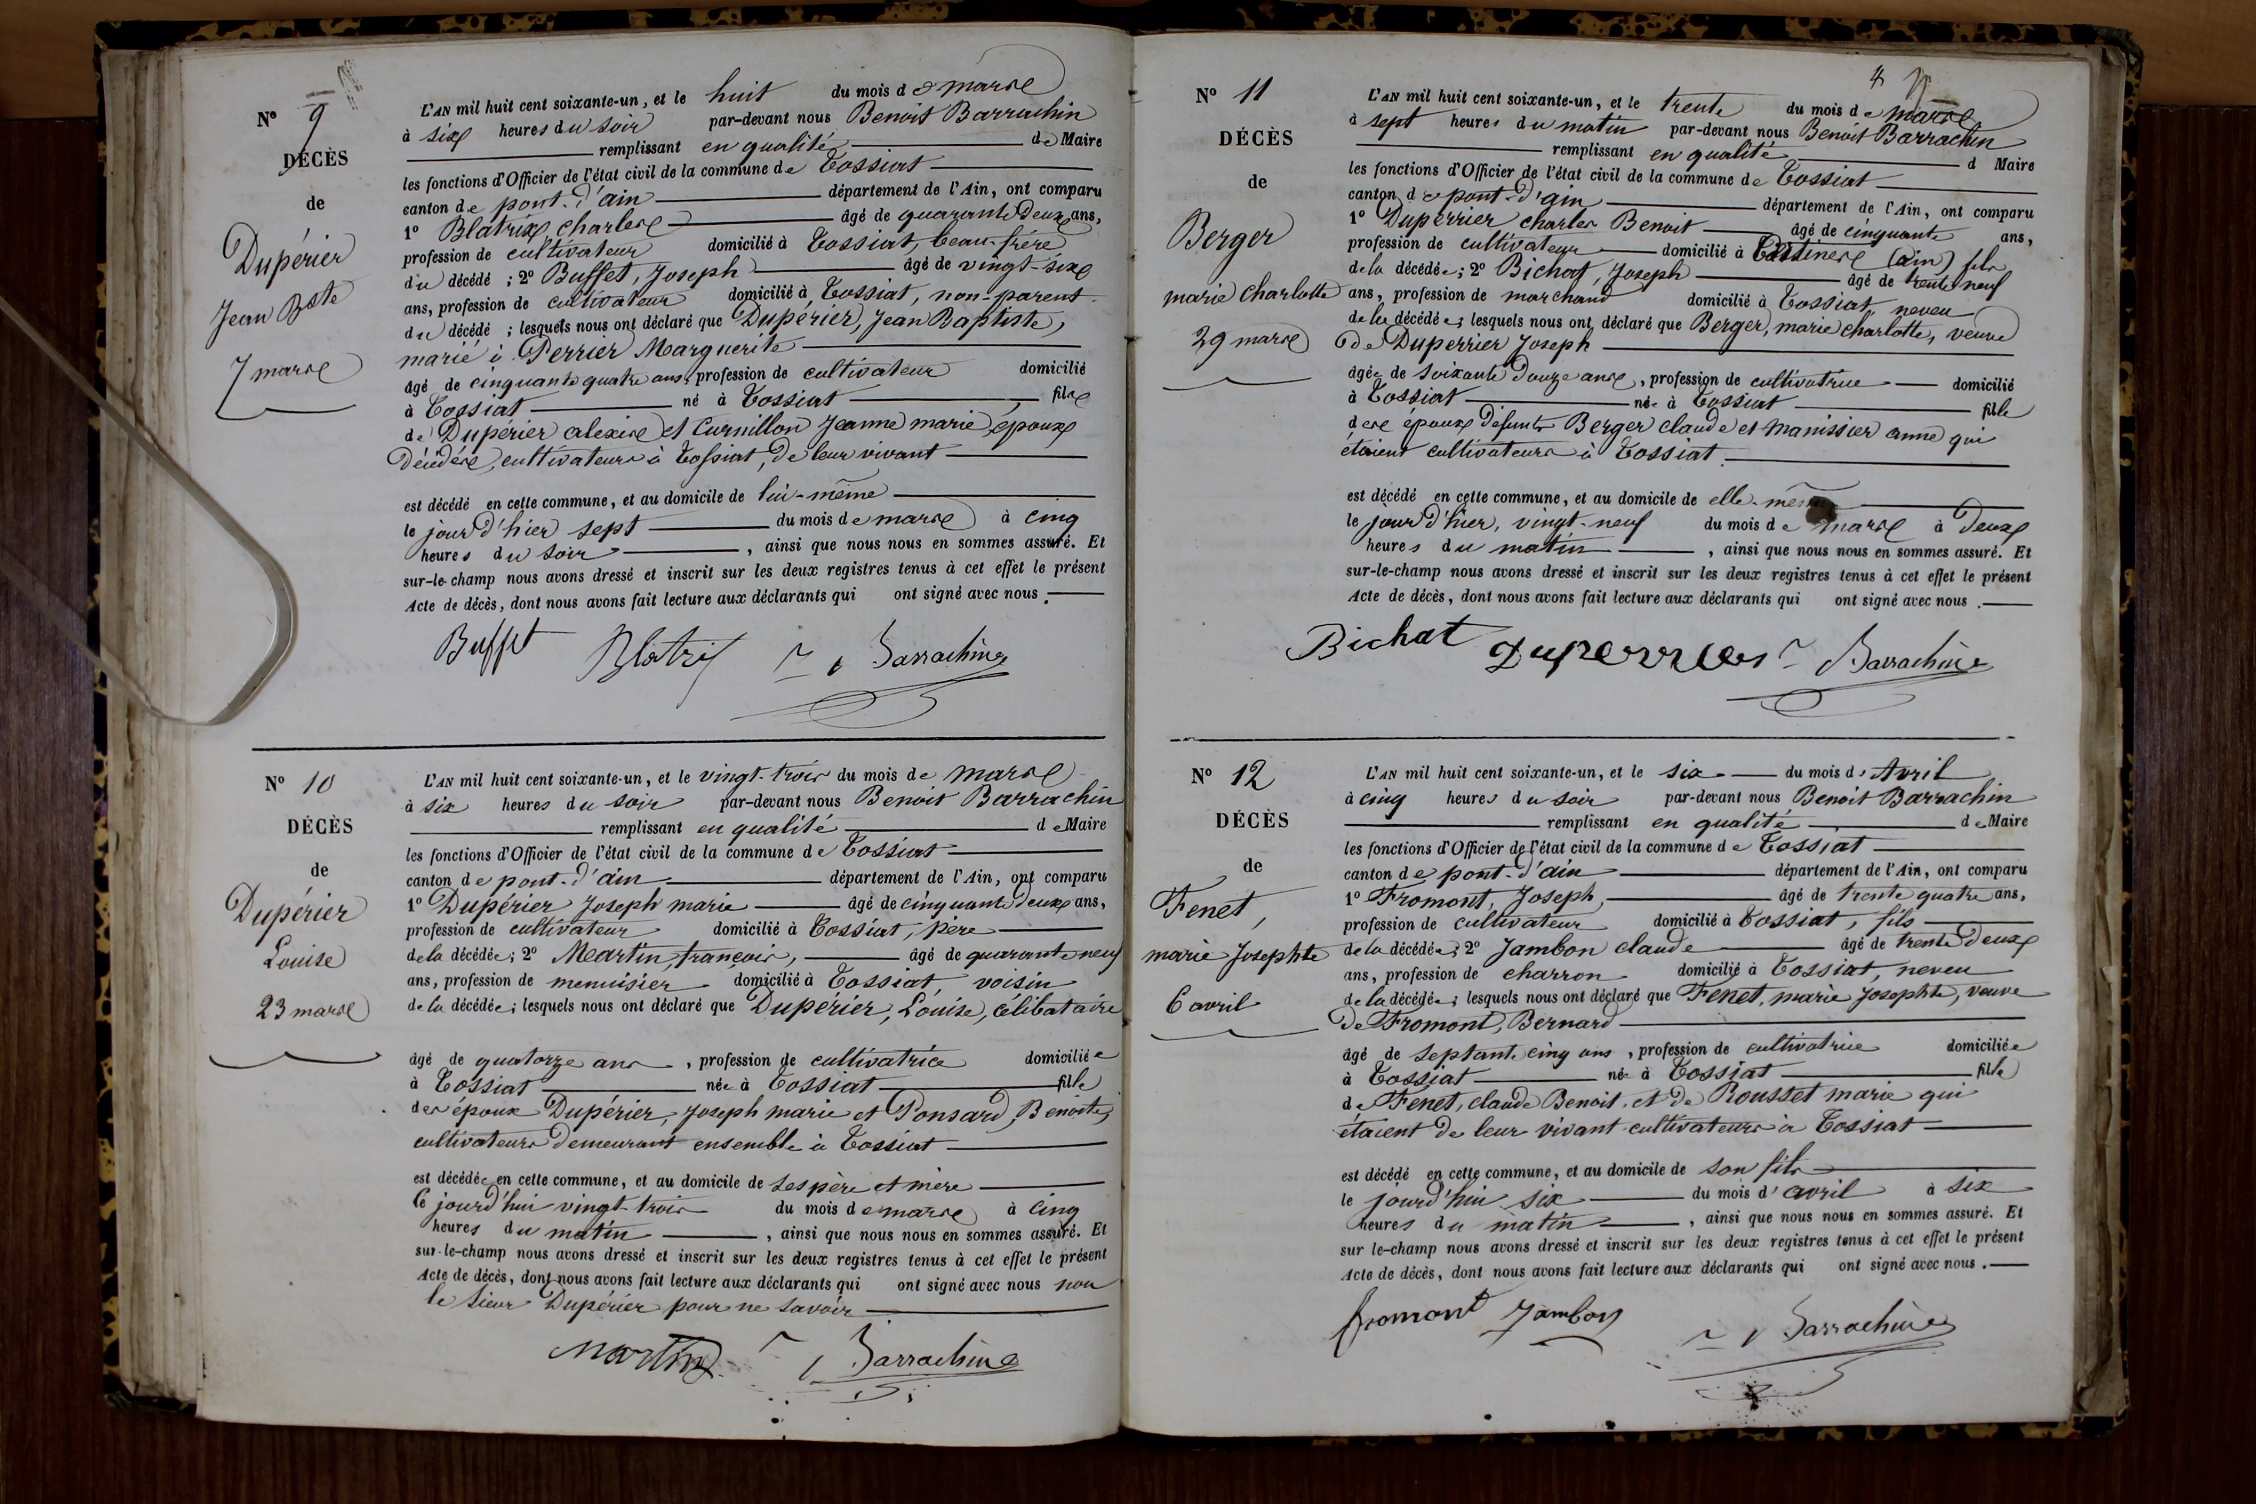 N° 9
DÉCÈS
de
Dupérier
Jean Bste
7 mars
L'AN mil huit cent soixante-un, et le huit du mois de mars
à six heures du soir par-devant nous Benoit Barrachin
remplissant en qualité de Maire
les fonctions d'Officier de l'état civil de la commune de Tossiat
canton de pont-d'ain département de l'Ain, ont comparu
1° Blatrix, Charles âgé de quarante deux ans,
profession de cultivateur domicilié à Tossiat, beau-frère
du décédé ; 2° Buffet, Joseph âgé de vingt-six
ans, profession de cultivateur domicilié à Tossiat, non-parent
du décédé ; lesquels nous ont déclaré que Dupérier, Jean Baptiste,
marié à Perrier Marguerite
âgé de cinquante quatre ans, profession de cultivateur domicilié
à Tossiat né à Tossiat fils
de Dupérier alexis et Curnillon Jeanne marie, époux
décédés, cultivateurs à Tossiat, de leur vivant
est décédé en cette commune, et au domicile de lui-même
le jour d'hier sept du mois de mars à cinq
heures du soir , ainsi que nous nous en sommes assuré. Et
sur-le-champ nous avons dressé et inscrit sur les deux registres tenus à cet effet le présent
Acte de décès, dont nous avons fait lecture aux déclarants qui ont signé avec nous.
Buffet Blatrix Barrachin
N° 10
DÉCÈS
de
Dupérier
Louise
23 mars
L'AN mil huit cent soixante-un, et le vingt-trois du mois de mars
à six heures du soir par-devant nous Benoit Barrachin
remplissant en qualité de Maire
les fonctions d'Officier de l'état civil de la commune de Tossiat
canton de pont-d'ain département de l'Ain, ont comparu
1° Dupérier Joseph marie âgé de cinquante deux ans,
profession de cultivateur domicilié à Tossiat, père
de la décédée ; 2° Martin, françois, âgé de quarante neuf
ans, profession de menuisier domicilié à Tossiat, voisin
de la décédée ; lesquels nous ont déclaré que Dupérier, Louise, célibataire
âgé de quatorze ans , profession de cultivatrice domiciliée
à Tossiat née à Tossiat fille
des époux Dupérier, Joseph marie et Ponsard, Benoite,
cultivateurs demeurant ensemble à Tossiat
est décédée en cette commune, et au domicile de ses père et mère
le jourd'hui vingt-trois du mois de mars à cinq
heures du matin , ainsi que nous nous en sommes assuré. Et
sur-le-champ nous avons dressé et inscrit sur les deux registres tenus à cet effet le présent
Acte de décès, dont nous avons fait lecture aux déclarants qui ont signé avec nous non
le sieur Dupérier pour ne savoir
Martin Barrachin
4
N° 11
DÉCÈS
de
Berger
marie Charlotte
29 mars
L'AN mil huit cent soixante-un, et le trente du mois de mars
à sept heures du matin par-devant nous Benoit Barrachin
remplissant en qualité d Maire
les fonctions d'Officier de l'état civil de la commune de Tossiat
canton de pont-d'ain département de l'Ain, ont comparu
1° Duperrier charles Benoit âgé de cinquante ans,
profession de cultivateur domicilié à (ain) fils
de la décédée ; 2° Bichat, Joseph âgé de trente neuf
ans, profession de marchand domicilié à Tossiat neveu
de la décédée ; lesquels nous ont déclaré que Berger, marie charlotte, veuve
de Duperrier Joseph
âgée de soixante douze ans, profession de cultivatrice domicilié
à Tossiat née à Tossiat fille
des époux défunts Berger claude et Manissier anne qui
étaient cultivateurs à Tossiat.
est décédé en cette commune, et au domicile de elle-même
le jour d'hier, vingt-neuf du mois de mars à deux
heures du matin , ainsi que nous nous en sommes assuré. Et
sur-le-champ nous avons dressé et inscrit sur les deux registres tenus à cet effet le présent
Acte de décès, dont nous avons fait lecture aux déclarants qui ont signé avec nous.
Bichat Duperrier Barrachin
N° 12
DÉCÈS
de
Fenet,
marie Josephte
6 avril
L'AN mil huit cent soixante-un, et le six du mois d'Avril
à cinq heures du soir par-devant nous Benoit Barrachin
remplissant en qualité de Maire
les fonctions d'Officier de l'état civil de la commune de Tossiat
canton de pont-d'ain département de l'Ain, ont comparu
1° Fromont, Joseph, âgé de trente quatre ans,
profession de cultivateur domicilié à Tossiat, fils
de la décédée ; 2° Jambon claude âgé de trente deux
ans, profession de charron domicilié à Tossiat, neveu
de la décédée ; lesquels nous ont déclaré que Fenet, marie Josephte, veuve
de Fromont, Bernard
âgé de septante cinq ans , profession de cultivatrice domiciliée
à Tossiat née à Tossiat fille
de Fenet, claude Benoit, et de Rousset marie qui
étaient de leur vivant cultivateurs à Tossiat
est décédé en cette commune, et au domicile de son fils
le jourd'hui six du mois d'avril à six
heures du matin , ainsi que nous nous en sommes assuré. Et
sur le-champ nous avons dressé et inscrit sur les deux registres tenus à cet effet le présent
Acte de décès, dont nous avons fait lecture aux déclarants qui ont signé avec nous.
fromont Jambon Barrachin